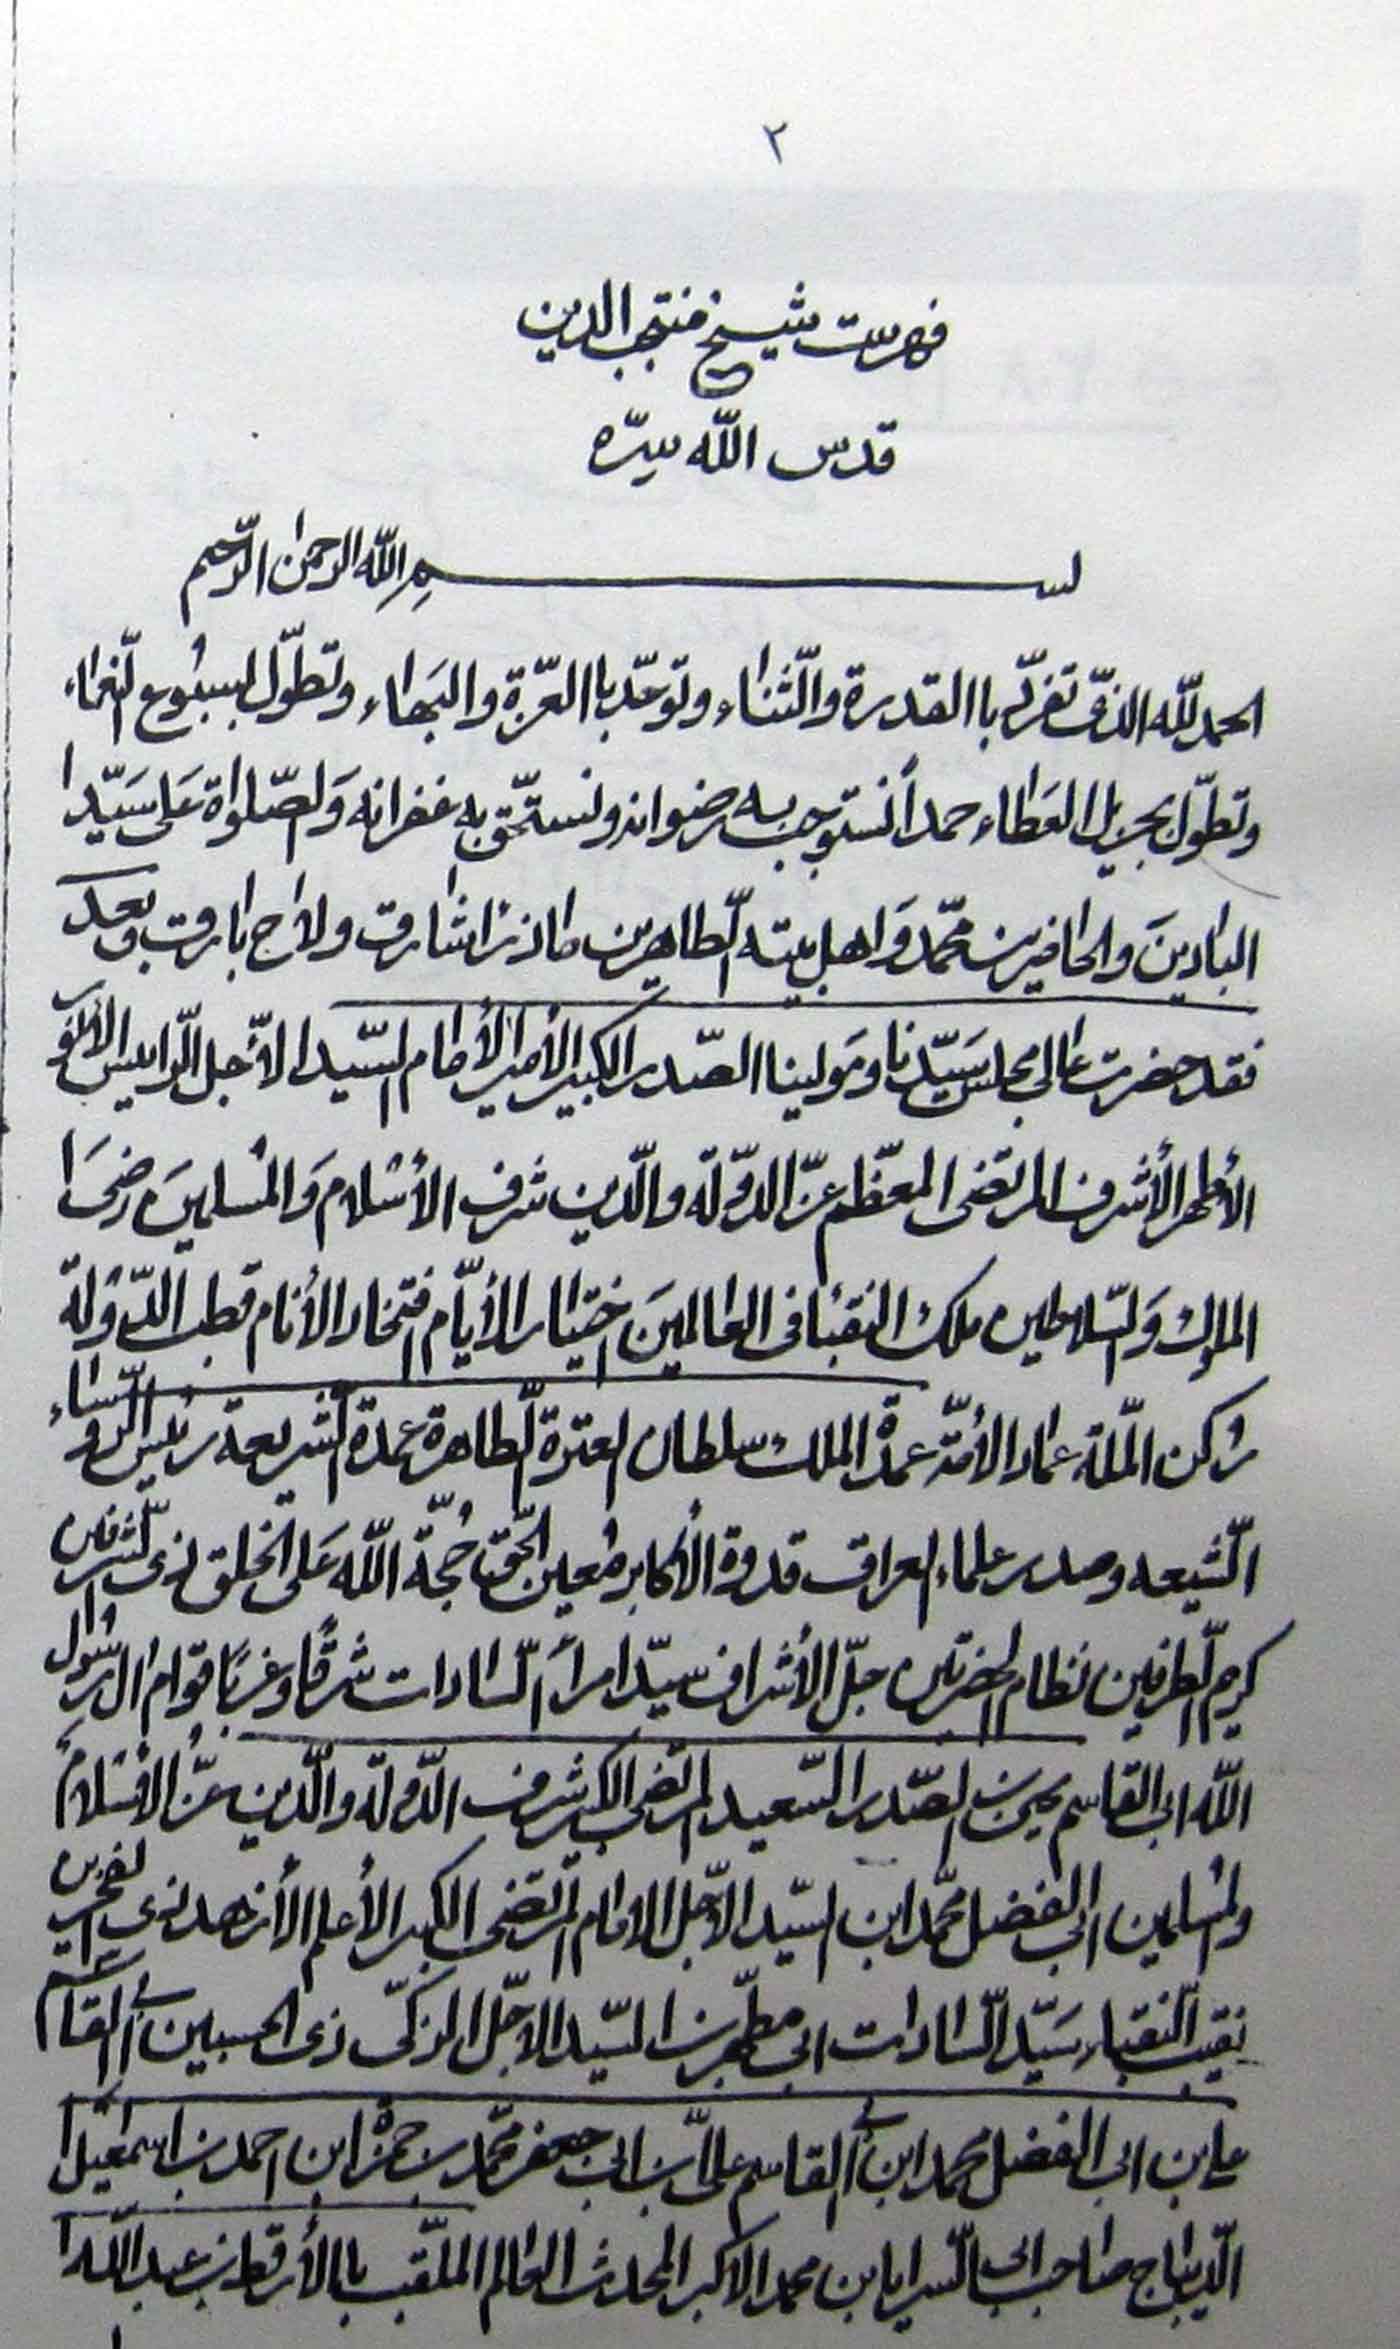 ٢
فهرست شيخ منتجب الدين
قدس اللّه سرّه
بسم اللّه الرحمن الرّحيم
الحمد للّه الذى تفرّد با القدرة والثّناء وتوحّد با العزّة والبهاء وتطوّل بسبوع النّعماء
وتطوّل بجزيل العطاء حمداً نستوجب به رضوانه ونستحّق به غفرانه وَالصّلواة عَلى سَيّد ا
البادينَ والحاضرين محمّد وَاهل بيته الطّاهرين ماذرّ شارق ولاح بارق وبعد
فقد حضرت عالى مجلس سَيّدنا ومَولينا الصّدر الكبير الأمير الأمام السّيد الأجل الرّئيس الأنور
الأطهر الأشرف المرتضى المعظّم عزّ الدّولة والدّين شرف الأسْلام وَالمُسلمينَ رضىَ ا
الملوك وَالسّلاطين ملك النقبا فى العالمينَ اختيار الأيّام افتخار الأنام قطب الدّولة
وركن الملّة عماد الأمّة عمدة الملك سلطان العترة الطّاهرة عمدة الشّريعة رئيس الرؤساء
الشّيعه وصدر علماء العراق قدوة الأكابر مُعين الحّق حُجّة اللّه عَلى الخلق ذى الشّرفين
كريم الطّرفين نظام الحضرتين جلّ الأشراف سيّد امراء السّادات شرقًا وغربًا قوام ال رسُول
اللّه ابى القاسم يحيى بن الصّدر السّعيد المرتضى الكبير شرف الدّولة والدّين عزّ الأسْلام
والمُسلمين ابى الفضل محمّد ابن السّيد الاجّل الامام المرتضى الكبير الأعلم الأزهد ذى الفخرين
نقيب النّقباء سَيّد السّادات ابى مطهّر بن السّيد الاجّل الزكىّ ذى الحسبين ابى القاسم
على بن ابى الفضل محمد ابن ابى القاسم على بن ابى جعفر محمّد بن حمزة ابن احمد بن اسمعيل ا
الدّيباج صاحب ابى السّرايا بن محمد الاكبر المحدث العالم الملقّب با الأرقط بن عبد اللّه ا